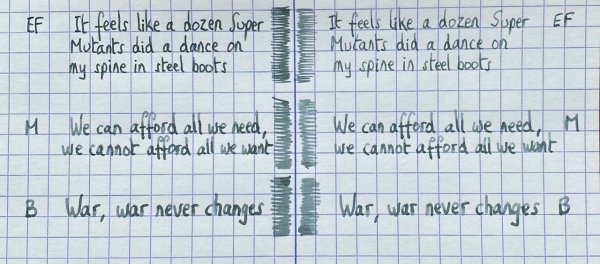 EF It feels like a dozen Super
Mutants did a dance on
my spine in steel boots
M We can afford all we need,
we cannot afford all we want
B War, war never changes
It feels like a dozen Super EF
Mutants did a dance on
my spine in steel boots
We can afford all we need, M
we cannot afford all we want
War, war never changes B